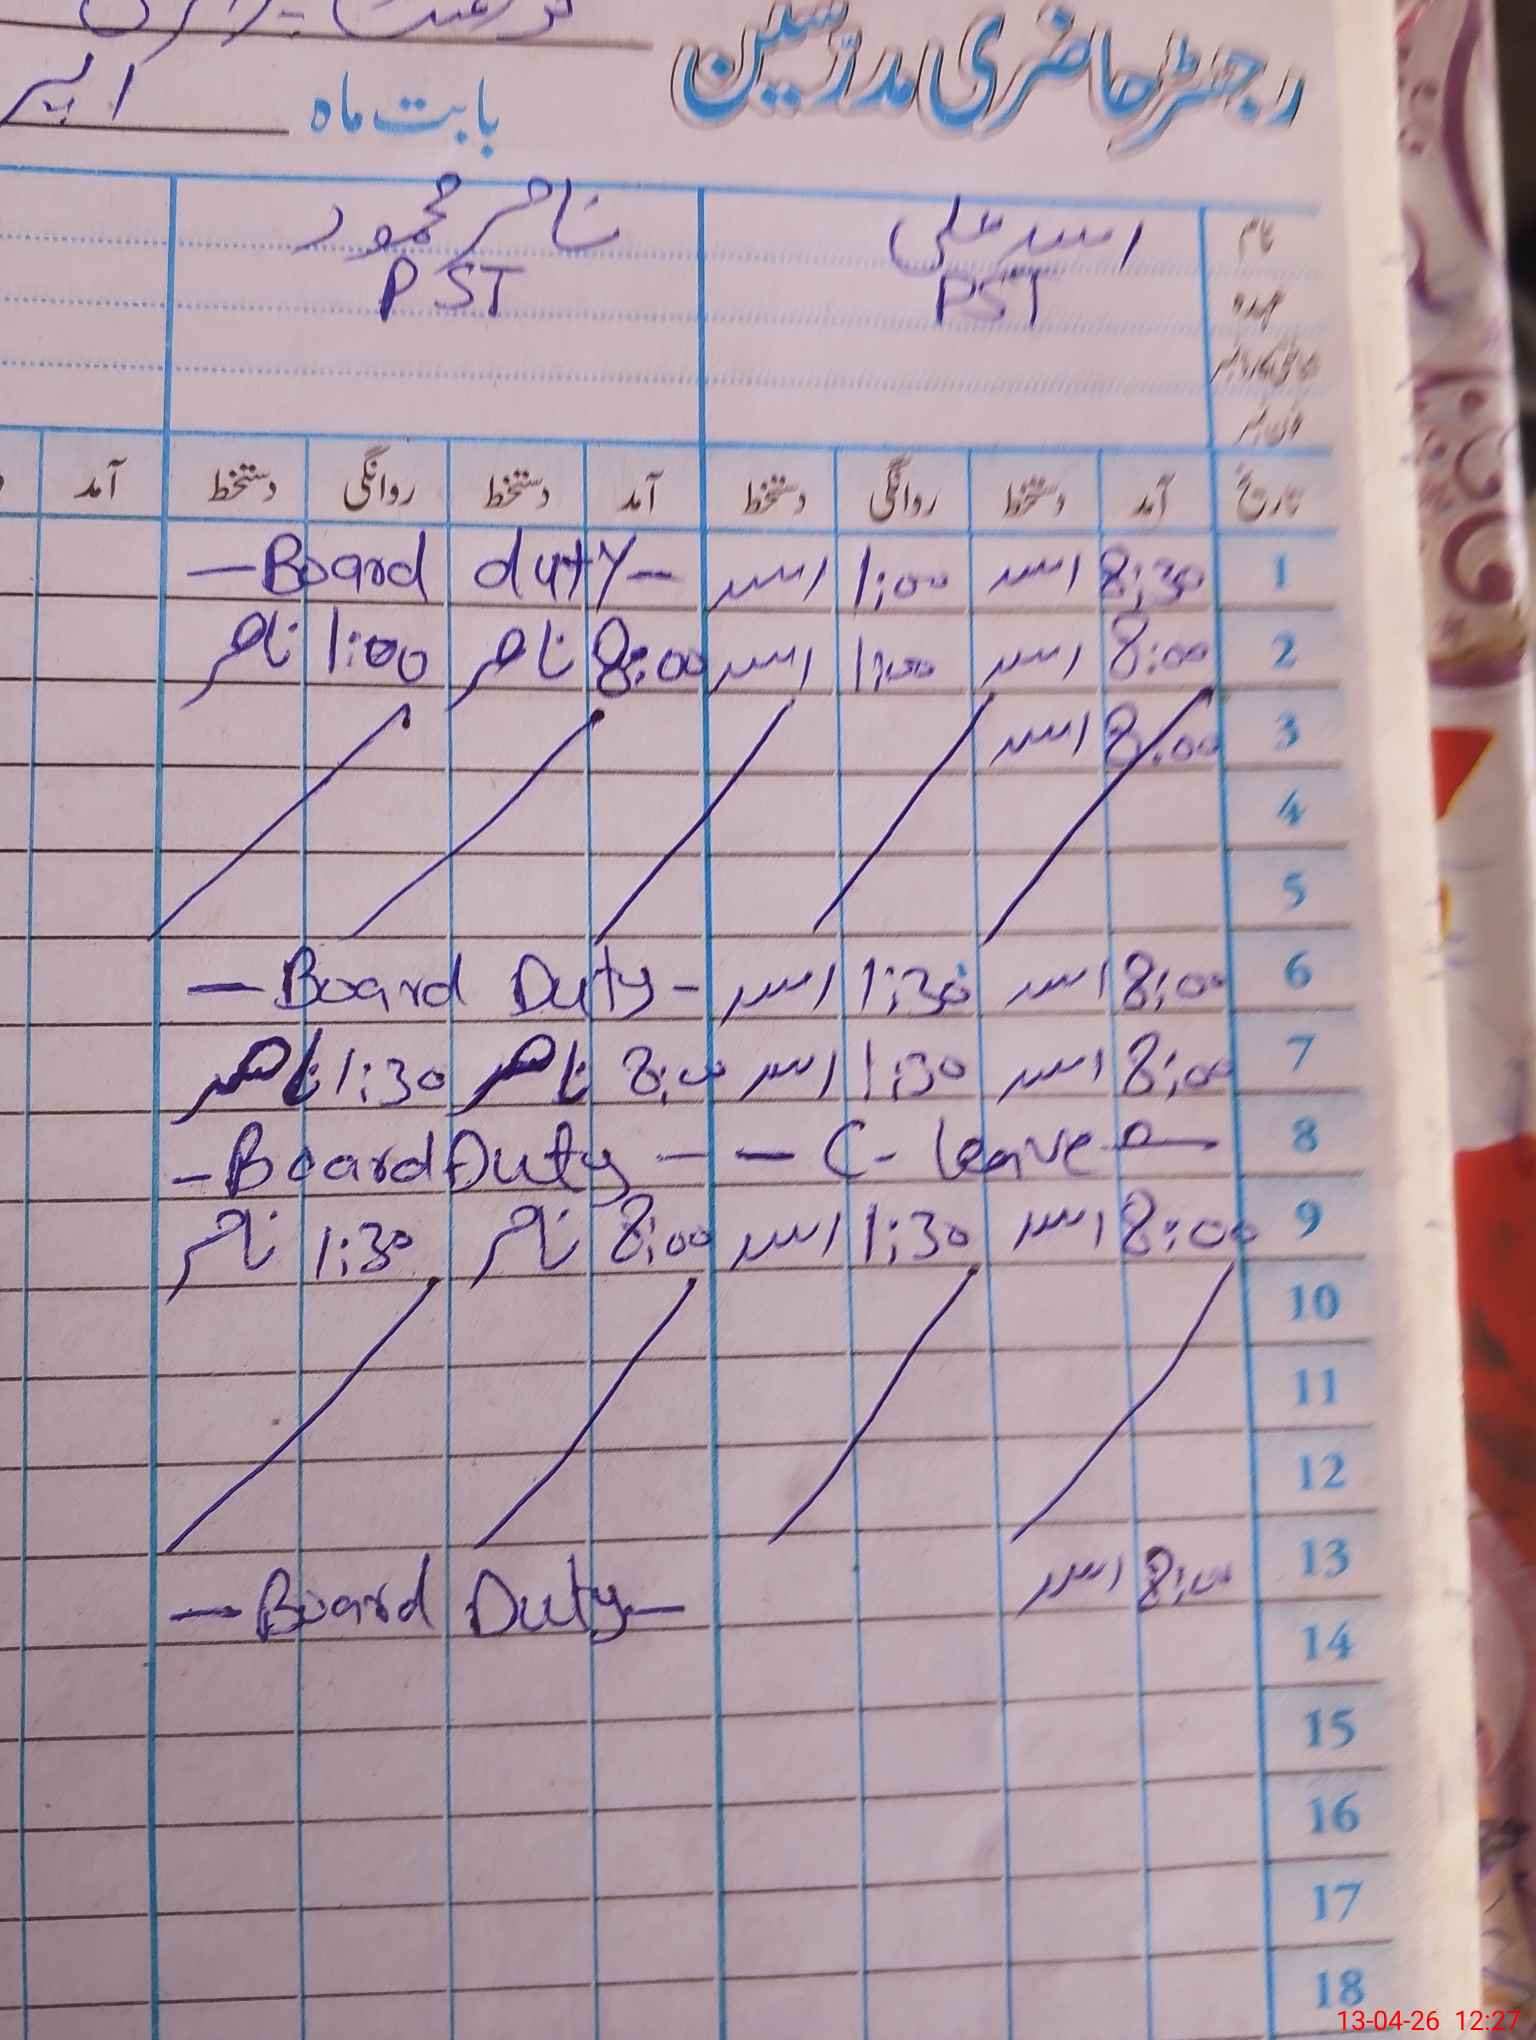 رجسٹر حاضری مدرسین
بابت ماہ
نام اسد علی ناصر محمود
عہدہ PST PST
تاریخ آمد دستخط روانگی دستخط آمد دستخط روانگی دستخط آمد
1 8:30 اسد 1:00 اسد — Board duty —
2 8:00 اسد 1:00 اسد 8:00 ناصر 1:00 ناصر
3 8:00 اسد
4
5
6 8:00 اسد 1:30 اسد — Board Duty —
7 8:00 اسد 1:30 اسد 8:00 ناصر 1:30 ناصر
8 — C- leave — — Board Duty —
9 8:00 اسد 1:30 اسد 8:00 ناصر 1:30 ناصر
10
11
12
13 8:00 اسد — Board Duty —
14
15
16
17
18
13-04-26 12:27